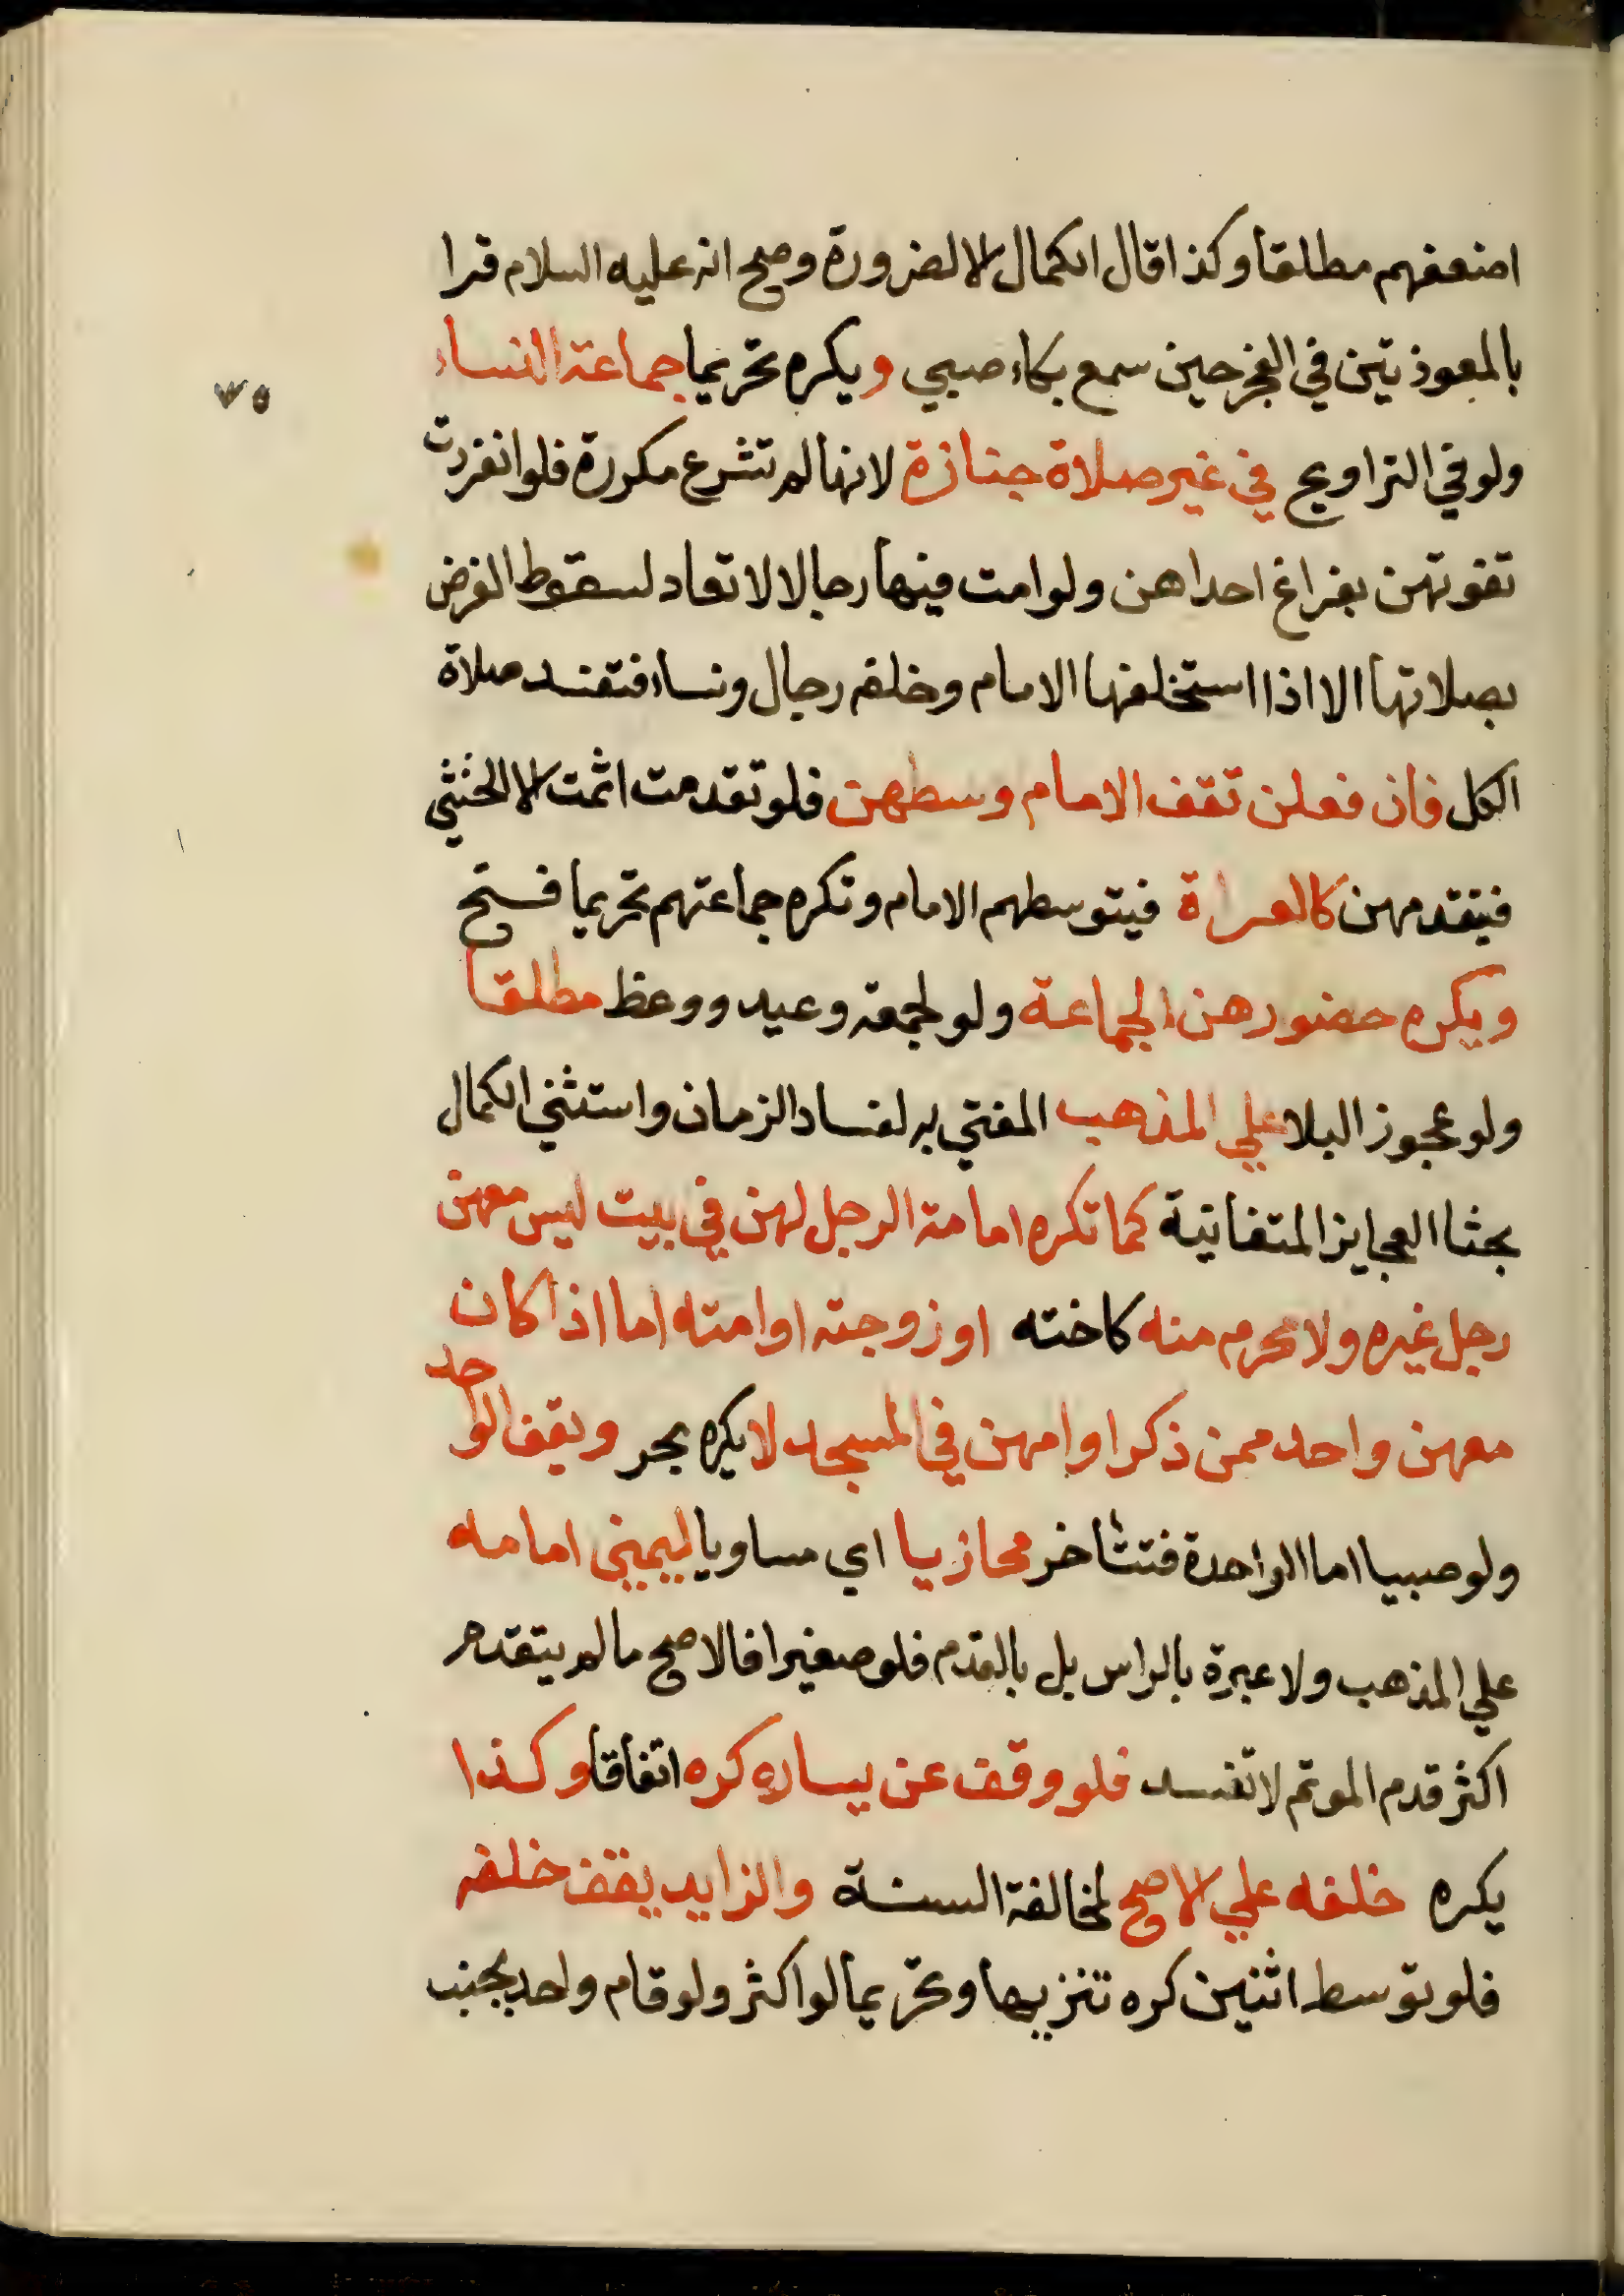 اضعفهم مطلقا وكذا قال الكمال الا لضرورة وصح انه عليه السلام قرا
بالمعوذتين في الفجر حين سمع بكاء صبي ويكره تحريما جماعة النساء
٧٥
ولو في التراويح في غير صلاة جنازة لانها لم تشرع مكررة فلو انفردت
تفوتهن بفراغ احداهن ولو امت فيها رجالا لا تعاد لسقوط الفرض
بصلاتها الا اذا استخلفها الامام وخلفه رجال ونساء فتفسد صلاة
الكل فان فعلن تقف الامام وسطهن فلو تقدمت اثمت الا الخنثي
فيتقدمهن كالعراة فيتوسطهم الامام وتكره جماعتهم تحريما فتح
ويكره حضورهن الجماعة ولو لجمعة وعيد ووعظ مطلقا
ولو عجوز البلا علي المذهب المفتي به لفساد الزمان واستثني الكمال
بحثا العجايز المتفانية كما تكره امامة الرجل لهن في بيت ليس معهن
رجل غيره ولا محرم منه كاخته او زوجته او امته اما اذا كان
معهن واحد ممن ذكر او امهن في المسجد لا يكره بحر ويقف الواحد
ولو صبيا اما الواحدة فتتاخر محازيا اي مساويا ليميني امامه
علي المذهب ولا عبرة بالراس بل بالقدم فلو صغيرا فالاصح ما لم يتقدم
اكثر قدم الموتم لا تفسد فلو وقف عن يساره كره اتفاقا وكذا
يكره خلفه علي الاصح لمخالفة السنة والزايد يقف خلفه
فلو توسط اثنين كره تنزيها وتحريما لو اكثر ولو قام واحد بجنب